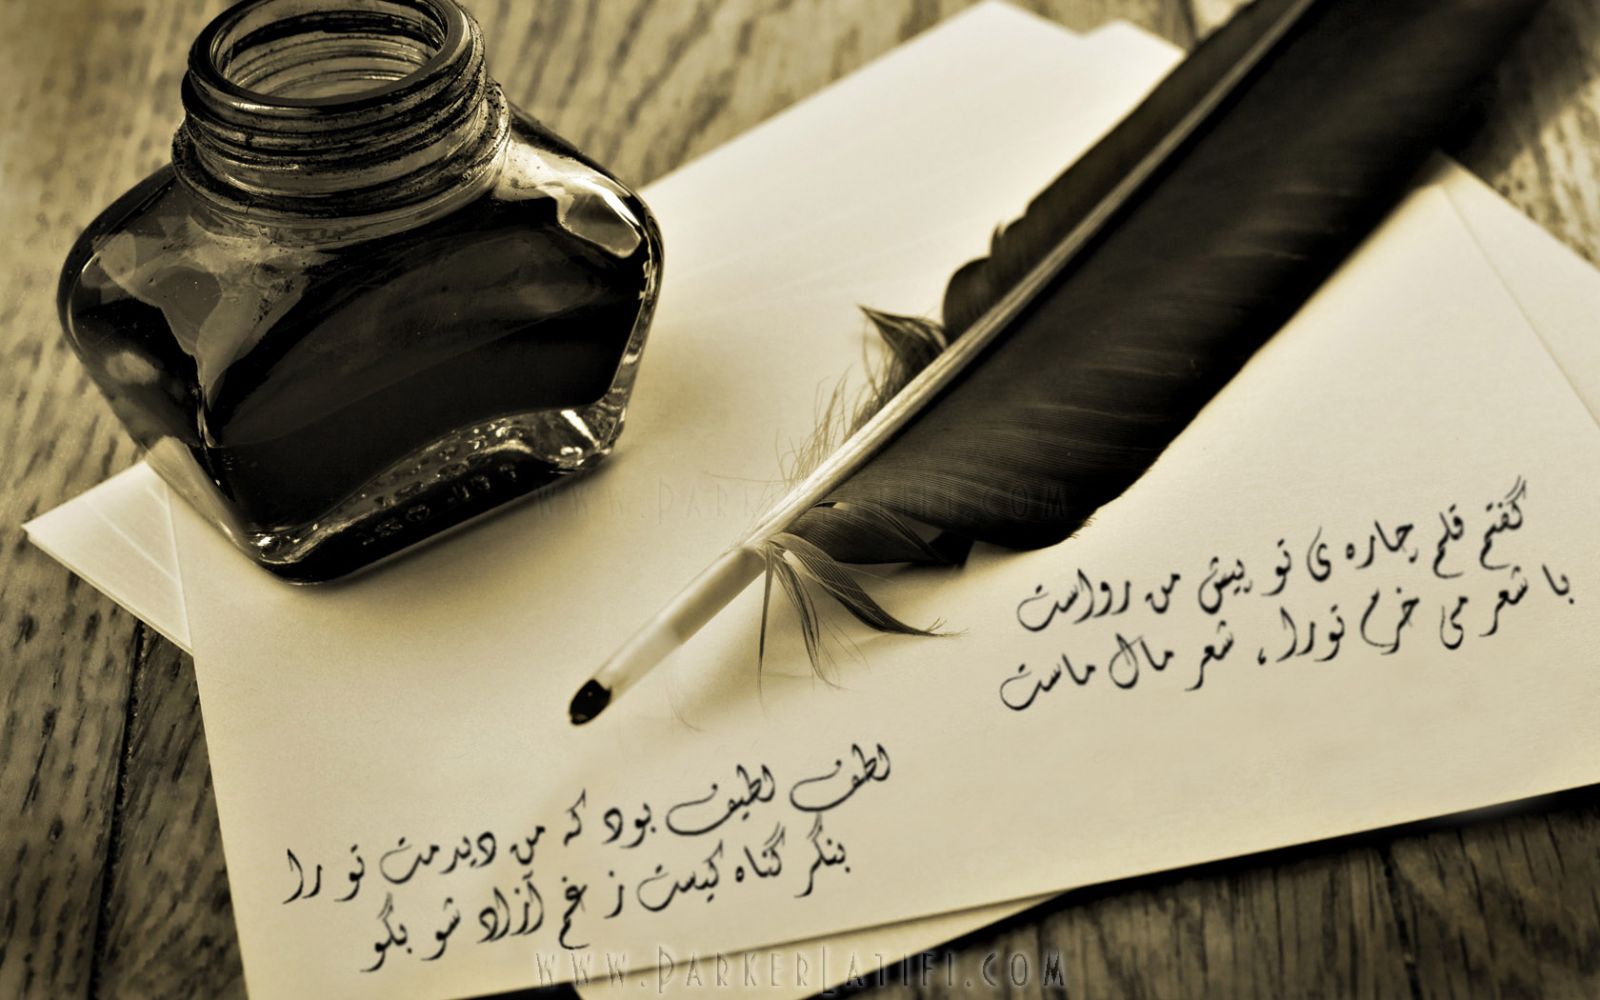 گفتم قلم چاره ی تو پیش من رواست
با شعر می خرم تورا، شعر مال ماست
لطف لطیف بود که من دیدمت تو را
بنگر گناه کیست ز غم آزاد شو بگو
www.ParkerLatifi.com
www.ParkerLatifi.com